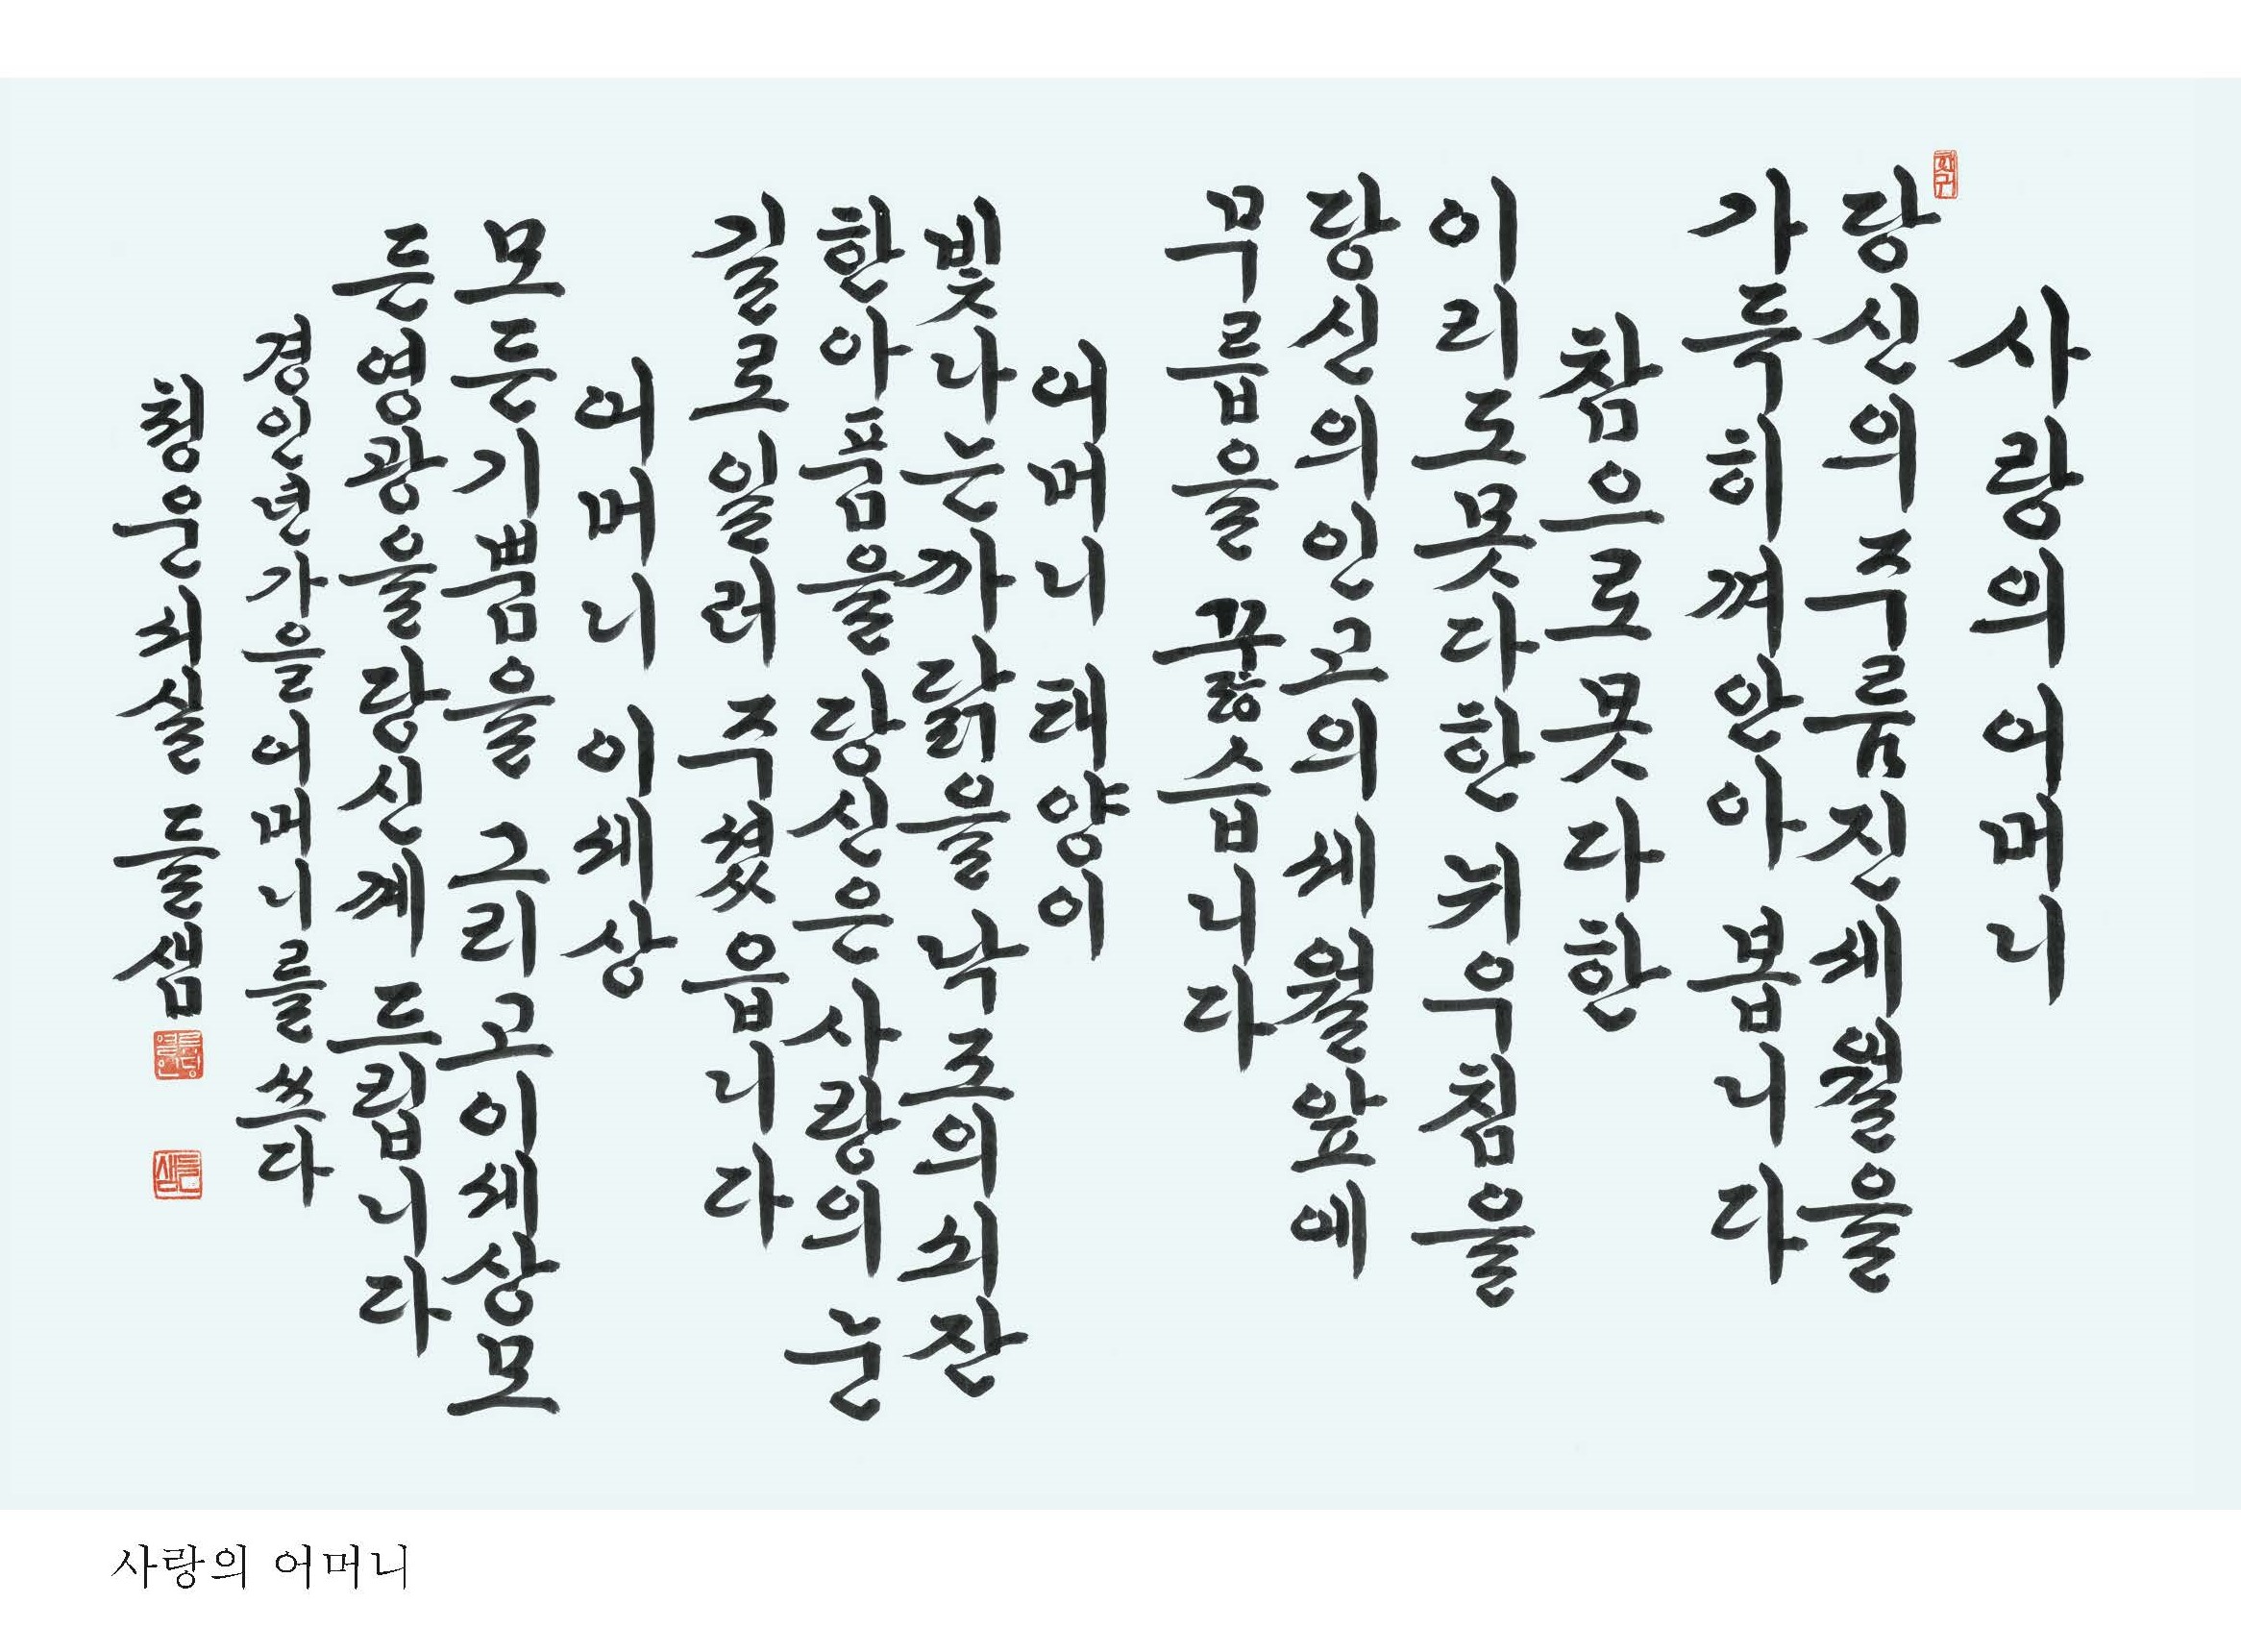 사랑의 어머니
당신의 주름진 세월을
가득히 껴안아 봅니다
참으로 못다한
이리도 못다한 뉘우침을
당신의 인고의 세월 앞에
무릎을 꿇습니다
어머니 태양이
빛나는 까닭을 낙조의 쇠잔
한 아픔을 당신은 사랑의 눈
길로 일러 주셨읍니다
어머니 이 세상
모든 기쁨을 그리고 이 세상 모
든 영광을 당신께 드립니다
경인년 가을 어머니를 쓰다
청운쇠실 들샘
사랑의 어머니